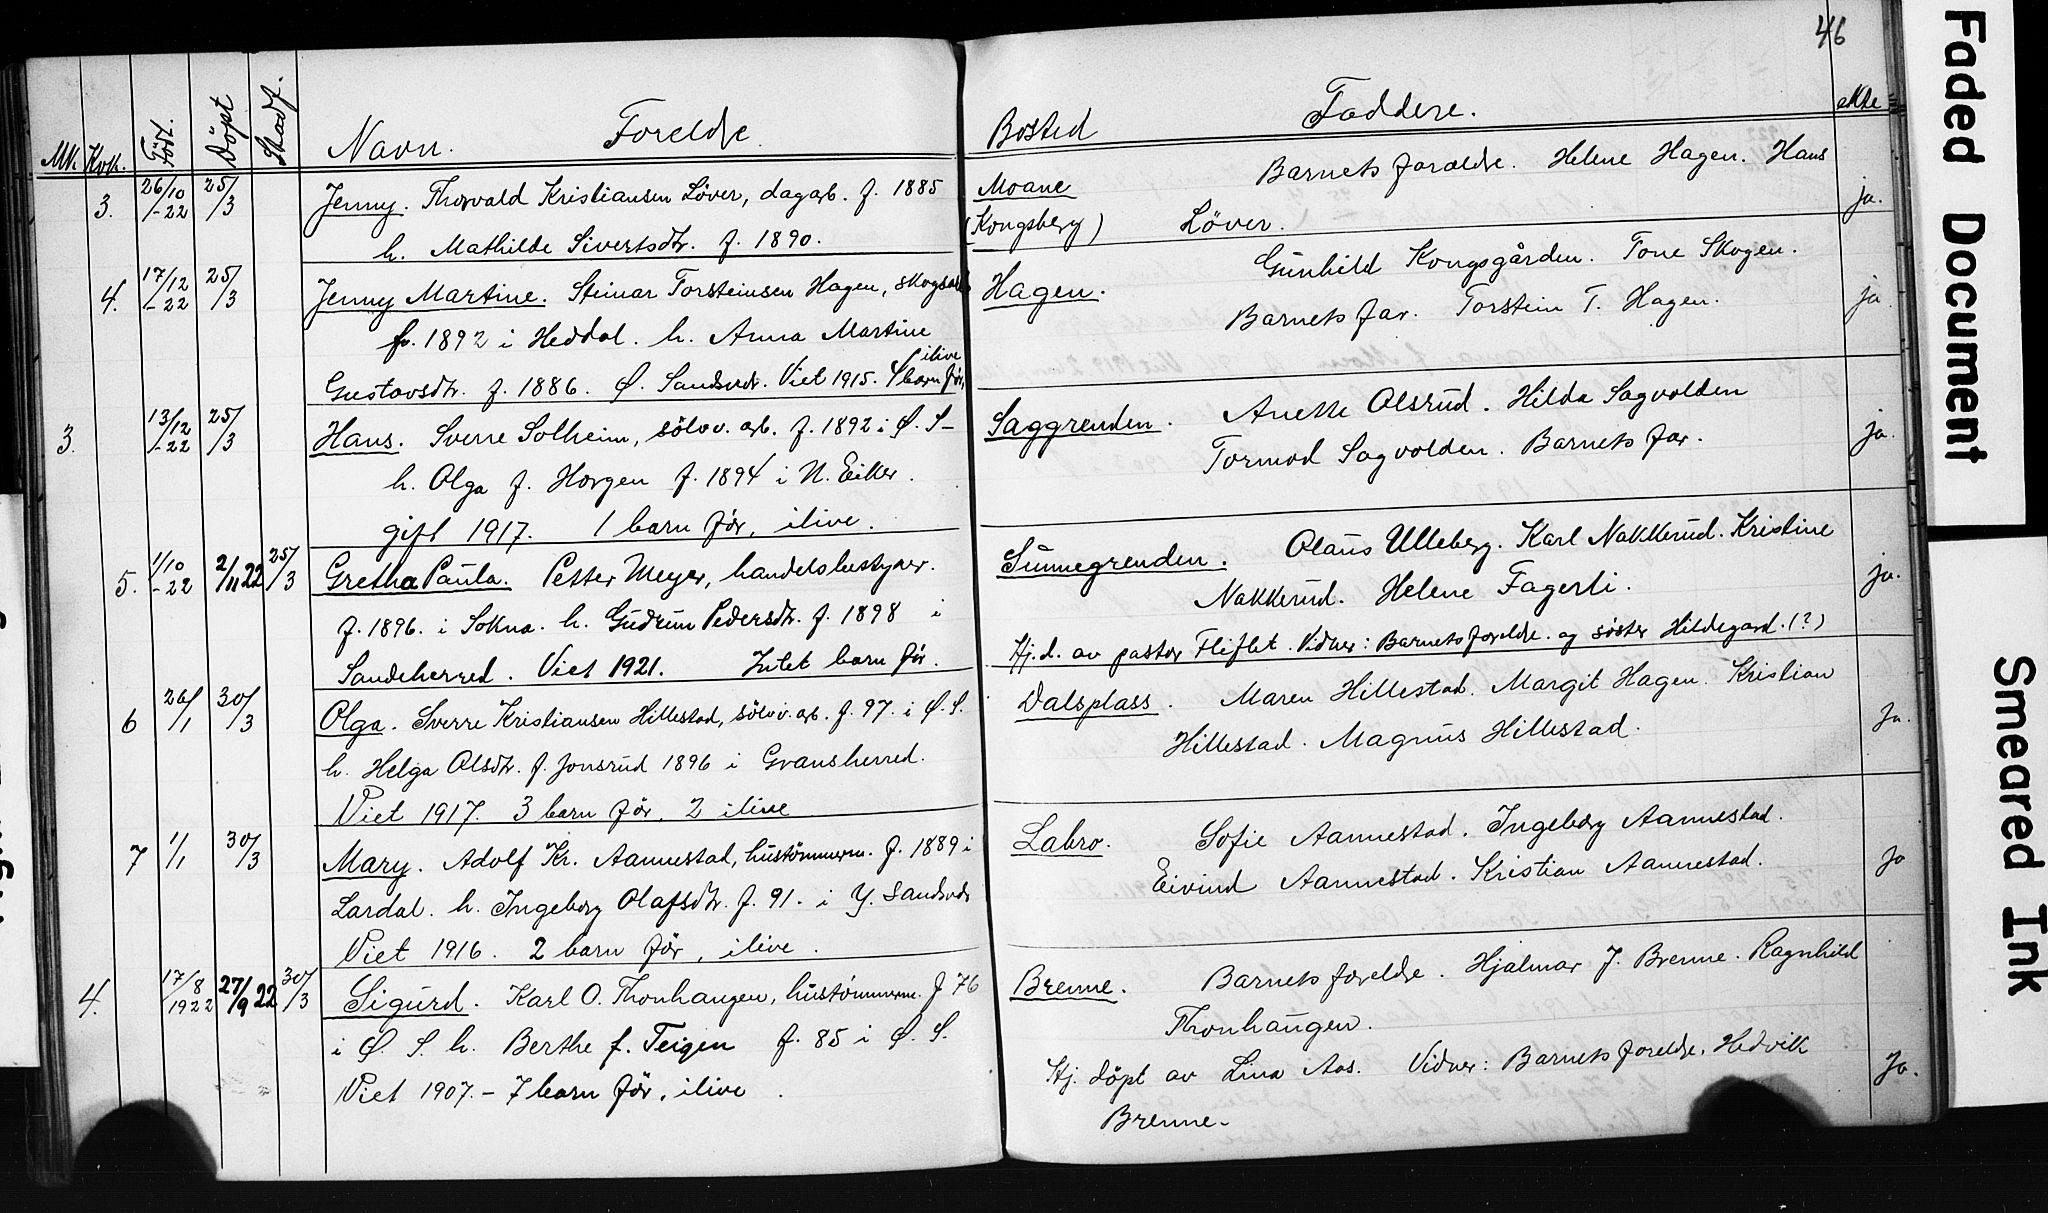 46
Mk. Kvk. Född. Döpt Stadf. Navn. Forelde Bosted Faddere. ekte
3. 26/10 -22 25/3 Jenny. Thorvald Kristiansen Löver, dagarb. f. 1885
h. Mathilde Sivertsdtr. f. 1890.
Moane Barnets forælde. Helene Hagen. Hans
(Kongsberg) Löver. ja.
4. 17/12 -22 25/3 Jenny Martine. Steinar Torsteinsen Hagen, skogsarb
f. 1892 i Heddal. h. Anna Martine
Gustavsdtr. f. 1886. Ø. Sandsvdr. Viet 1915. 4 barn för, ilive
Hagen. Gunhild Kongsgården. Tone Skogen.
Barnets far. Torstein T. Hagen. ja.
3. 13/12 -22 25/3 Hans. Sverre Solheim, sölvv. arb. f. 1892 i Ø. S-
h. Olga f. Horgen f. 1894 i N. Eiker.
gift 1917. 1 barn för, ilive.
Saggrenden. Anette Olsrud. Hilda Sagvolden
Tormod Sagvolden. Barnets far. ja.
5. 1/10 -22 2/11 22 25/3 Gretha Paula. Petter Meyer, handelsbestyrer.
f. 1896. i Sokna. h. Gudrun Pedersdtr. f. 1898 i
Sandeherred. Viet 1921. Intet barn för.
Sunnegrenden. Olaus Ulleberg. Karl Nakkerud. Kristine
Nakkerud. Helene Fagerli. ja.
Hj. d. av pastor Fliflet. Vidner: Barnets forelde. og söster Hildegard. (?)
6 26/1 30/3 Olga. Sverre Kristiansen Hillestad, sölvv. arb. f. 97. i Ø. S.
h. Helga Olsdtr. f. Jonsrud 1896 i Gransherred.
Viet 1917. 3 barn för. 2 ilive
Dalsplass. Maren Hillestad. Margit Hagen. Kristian
Hillestad. Magnus Hillestad. Ja.
7 1/1 30/3 Mary. Adolf Kr. Aannestad, hustömmerm. f. 1889 i
Lardal. h. Ingeborg Olafsdtr. f. 91. i Y. Sandsvdr
Viet 1916. 2 barn för, ilive.
Labro. Sofie Aannestad. Ingeborg Aannestad.
Eivind Aannestad. Kristian Aannestad. Ja
4. 17/8 1922 27/9 22 30/3 Sigurd. Karl O. Thonhaugen, hustömmerm. f 76
i Ø. S. h. Berthe f. Teigen f. 85 i Ø. S.
Viet 1907. - 7 barn för, ilive.
Brenne. Barnets forelde. Hjalmar J. Brenne. Ragnhild
Thonhaugen.
Hj. döpt av Lina Aas. Vidner: Barnets forelde, Hedvik Ja.
Brenne.
Faded Document
Smeared Ink